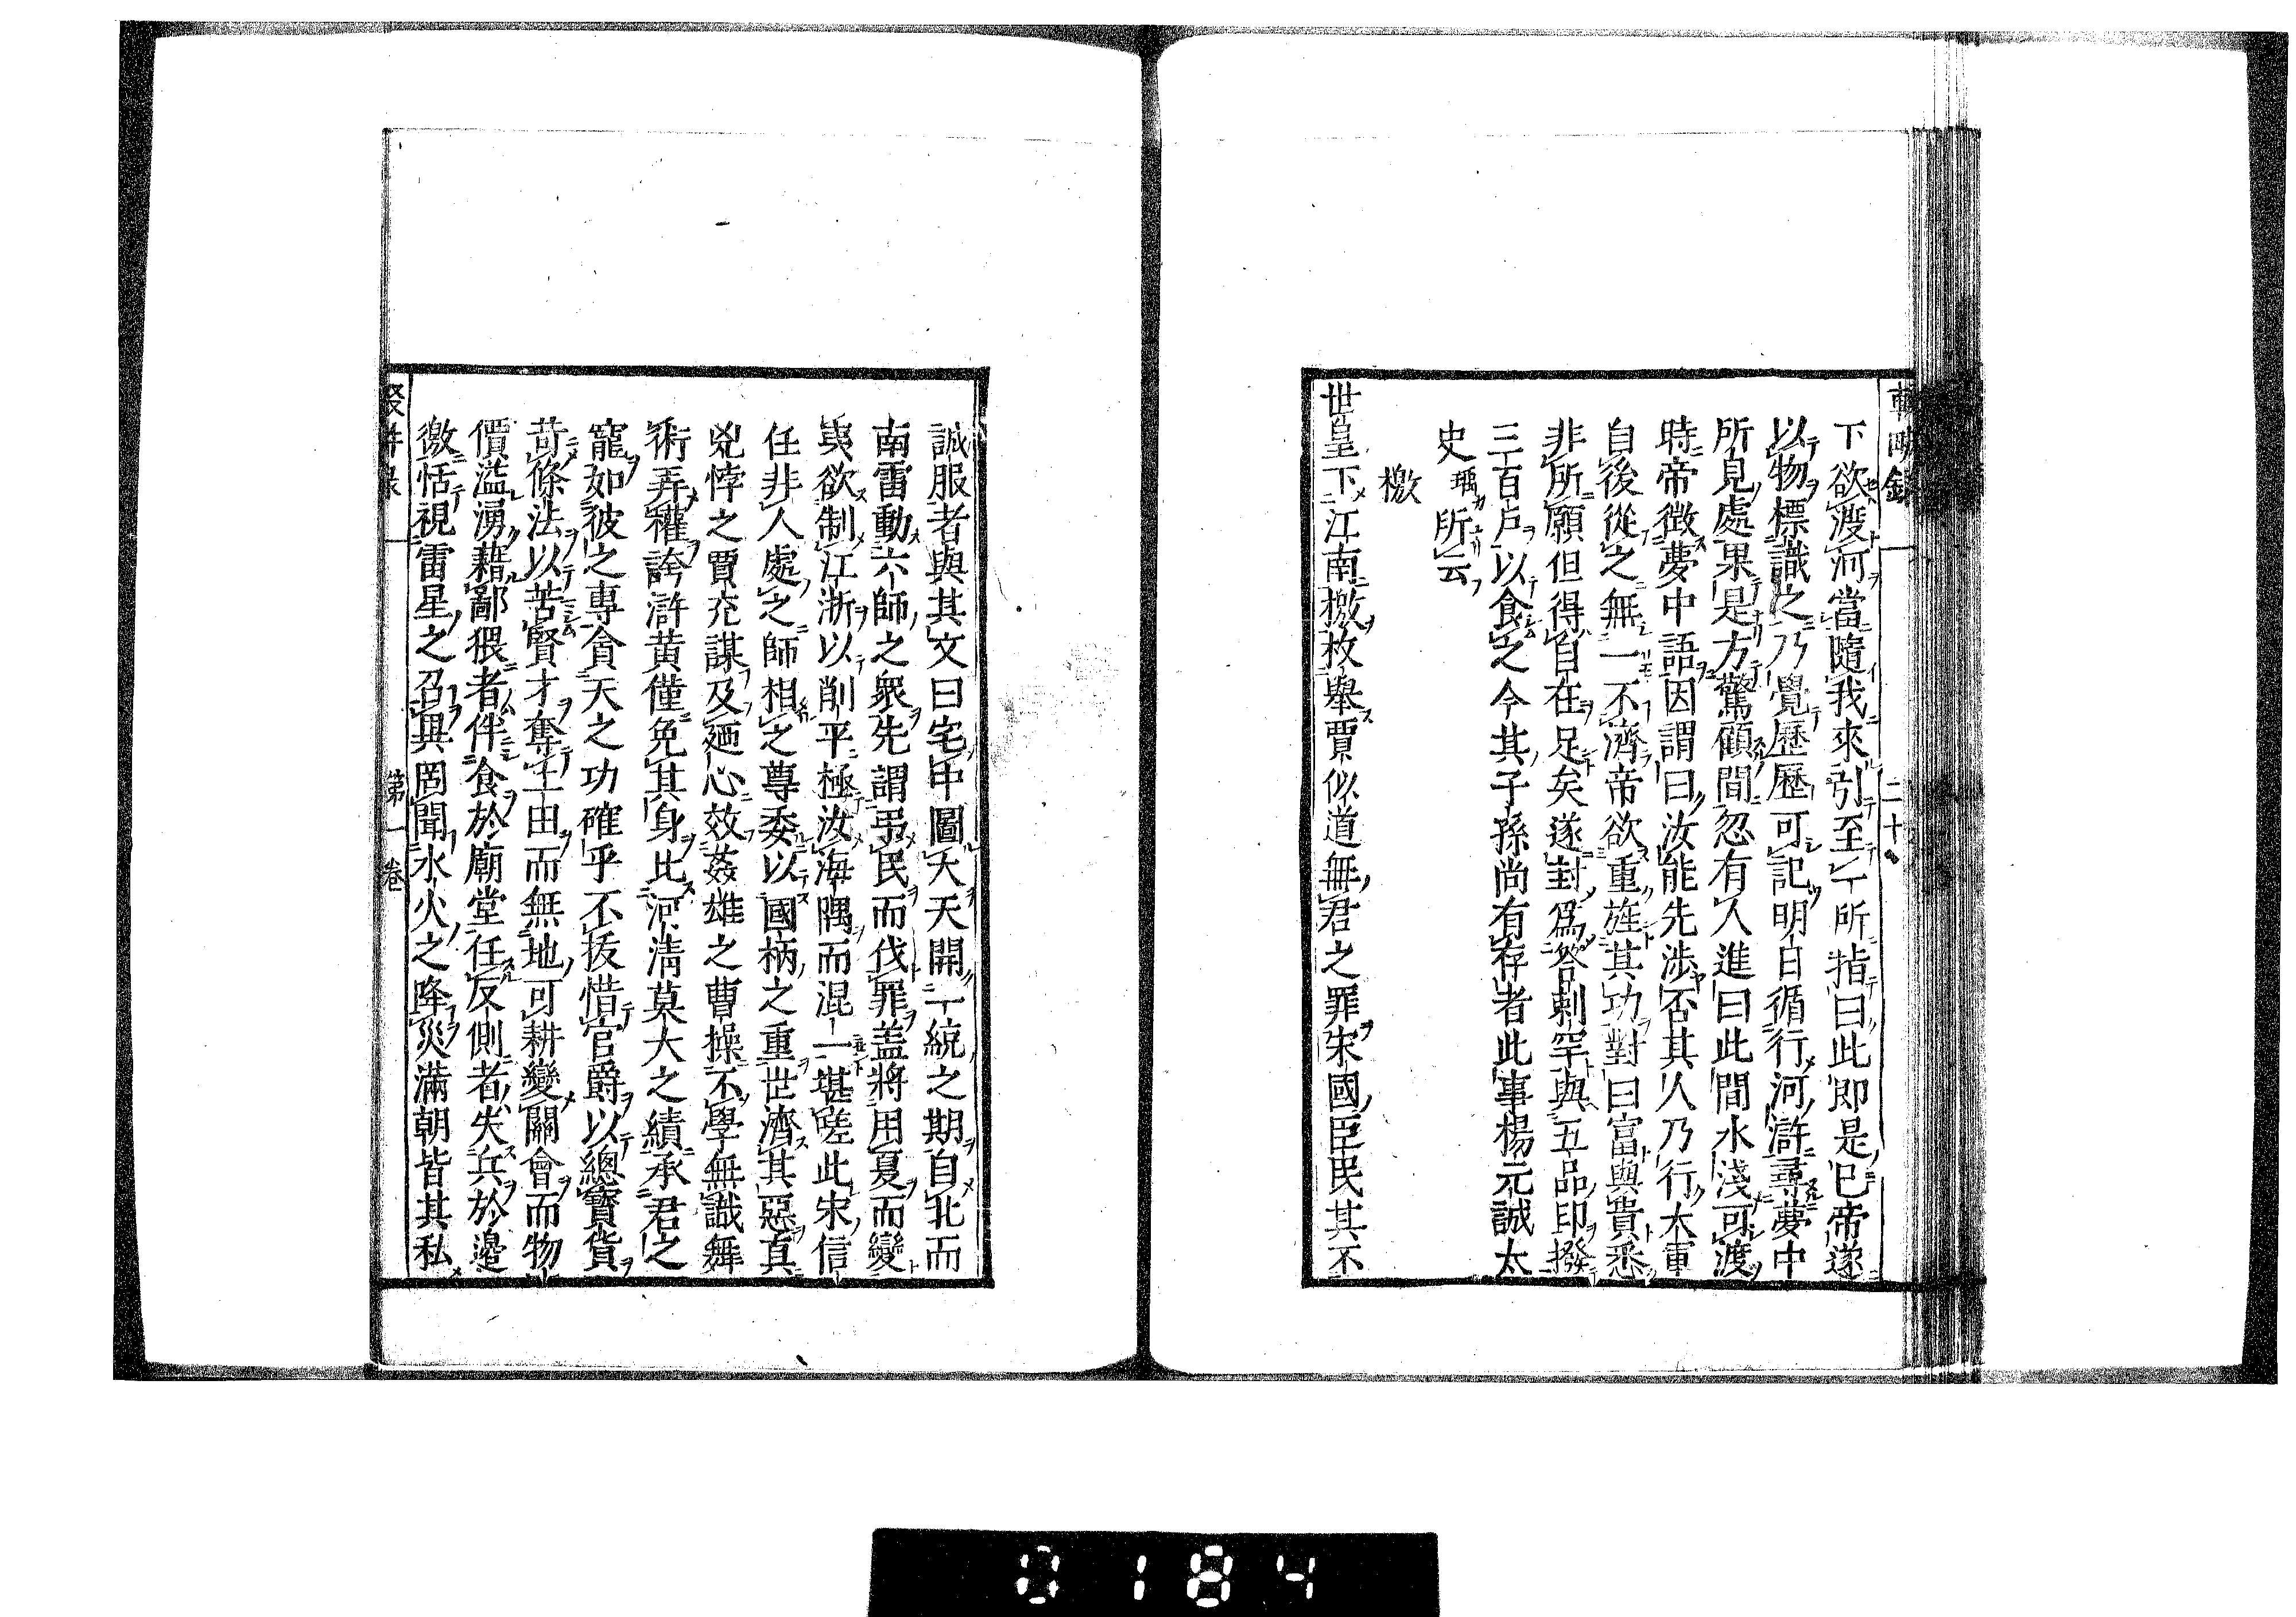 二十
下欲渡河當隨我來引至一所指曰此即是已帝遂
以物標識之乃覺歷歷可記明日循行河滸尋夢中
所見處果是方驚顧間忽有人進曰此間水淺可渡
時帝徴夢中語因謂曰汝能先渉否其人乃行大軍
自後從之無一不濟帝欲重旌其功對曰富與貴悉
非所願但得自在足矣遂封爲答剌罕與五品印撥
三百戶以食之今其子孫尚有存者此事楊元誠太
史瑀所云
檄
世皇下江南檄枚舉賈似道無君之罪宋國臣民其不
誠服者與其文曰宅中圖大天開一統之期自北而
南雷動六師之衆先謂弔民而伐罪盖將用夏而變
夷欲制江浙以削平極汝海隅而混一堪嗟此宋信
任非人處之師相之尊委以國柄之重世濟其惡真
兇悖之賈充謀及廼心效姦雄之曹操不學無識舞
術弄權誇滸黄僅免其身比河淸莫大之績承君之
寵如彼之專貪天之功確乎不拔惜官爵以總寶貨
苛條法以苦賢才奪土田而無地可耕變關會而物
價溢湧藉鄙猥者伴食於廟堂任反側者失兵於邊
徼恬視雷星之召異罔聞水火之降災滿朝皆其私
第一卷